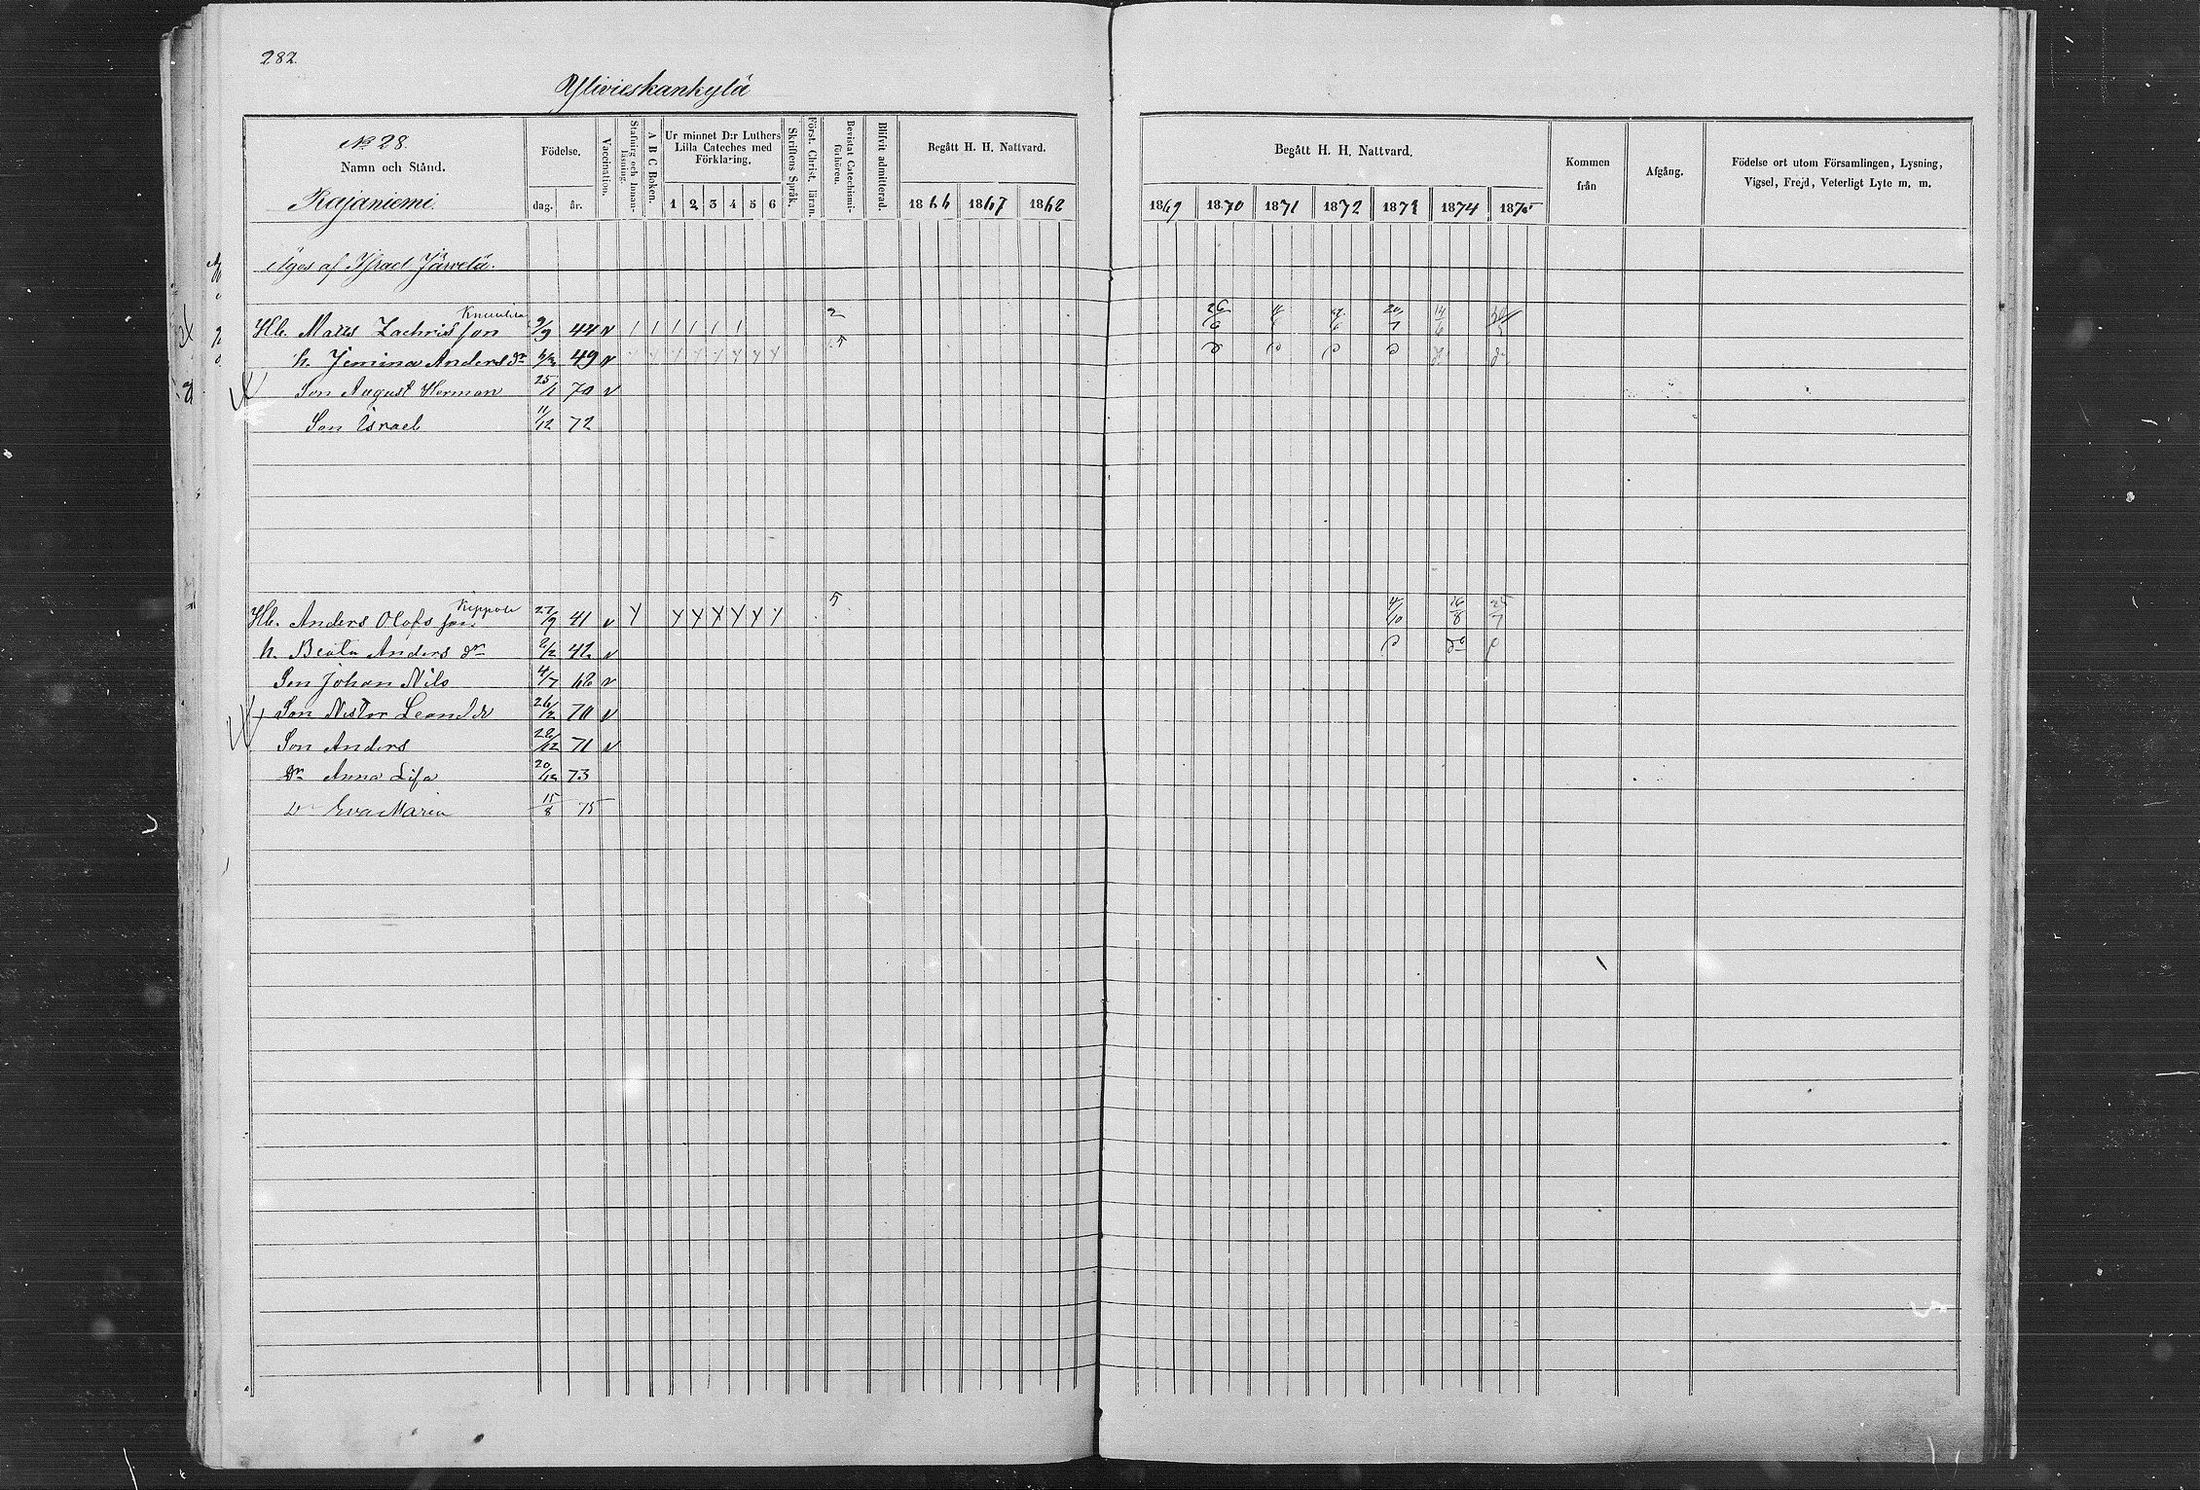 282.
Ylivieskankylä
No 28.
Namn och Stånd.
Rajaniemi.
Födelse.
dag.
år.
Vaccination.
Stafning och Innan-
läsning.
A B C Boken.
Ur minnet D:r Luthers
Lilla Cateches med
Förklaring.
1 2 3 4 5 6
Skriftens Språk.
Först. Christ. läran.
Bevistat Catechismi-
förhören.
Blifvit admitterad.
Begått H. H. Nattvard.
1866 1867 1868
Begått H. H. Nattvard.
1869 1870 1871 1872 1873 1874 1875
Kommen
från
Afgång.
Födelse ort utom Församlingen, Lysning,
Vigsel, Frejd, Veterligt Lyte m. m.
Äges af Israel Järvelä.
Hb. Matts Zachrisson 9/9 44 v 2 26/6 20/7 14/6
h. Jemina Anders dr 49 v 5
Son August Herman 25/1 70 v
Son Israel 11/12 72
Hb. Anders Olofsson 27/9 41 v 5 4/10 16/8 25/7
h. Beata Anders dr 2/2 42 v do
Son Johan Nils 4/7 68 v
Son Nestor Leander 26/2 70 v
Son Anders 28/12 71 v
Dr Anna Lisa 20/12 73
Dr Eva Maria 15/8 75